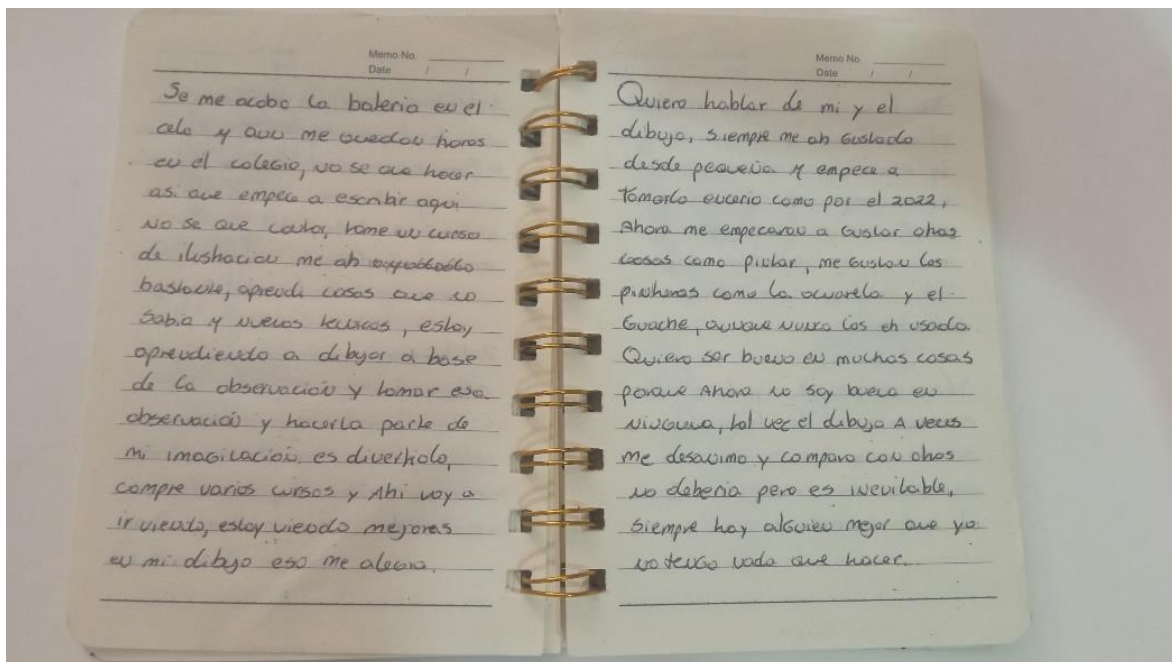 Memo No.
Date / /
Se me acabo la bateria en el
celu y aun me quedan horas
en el colegio, no se que hacer
asi que empece a escribir aqui
No se que contar, tome un curso
de ilustracion me ah
bastante, aprendi cosas que no
sabia y nuevas tecnicas, estoy
aprendiendo a dibujar a base
de la observación y tomar esa
observación y hacerla parte de
mi imaginacion. es divertido,
compre varios cursos y Ahi voy a
ir viendo, estoy viendo mejoras
en mi dibujo eso me alegra.
Memo No.
Date / /
Quiero hablar de mi y el
dibujo, siempre me ah Gustado
desde pequeña y empece a
Tomarlo enserio como por el 2022,
Ahora me empezaron a Gustar otras
cosas como pintar, me Gustan las
pinturas como la acuarela y el
Guache, aunque nunca las eh usado.
Quiero ser bueno en muchas cosas
porque Ahora no soy buena en
ninguna, tal vez el dibujo A veces
me desanimo y comparo con otros
no deberia pero es inevitable,
siempre hay alguien mejor que yo
no tengo nada que hacer.